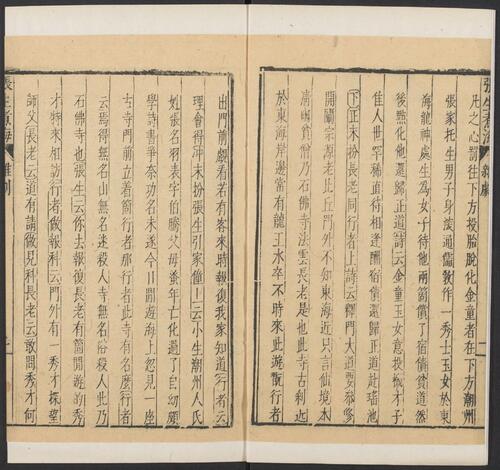 張生煮海 雜劇
凡之心罰往下方投胎脫化金童者在下方潮州
張家托生男子身深通儒教作一秀士玉女於東
海龍神處生為女子待他兩箇償了宿債貧道然
後點化他還歸正道詩云金童玉女意投機才子
佳人世罕稀直待相逢酬宿債還歸正道赴瑤池
下正末扮長老同行者上詩云釋門大道要參修
開闡宗源老比丘門外不知東海近只言仙境本
清幽貧僧乃石佛寺法雲長老是也此寺古刹近
於東海岸邊常有龍王水卒不時來此遊翫行者
出門前覷看若有客來時報復我家知道行者云
理會得冲末扮張生引家僮上云小生潮州人氏
姓張名羽表字伯騰父母蚤年亡化過了自幼頗
學詩書爭奈功名未遂今日閒遊海上忽見一座
古寺門前立着箇行者那行者此寺有名麼行者
云焉得無名山無名迷殺人寺無名俗殺人此乃
石佛寺也張生云你去報復長老有箇閒遊的秀
才特來相訪行者做報科云門外有一秀才探望
師父長老云道有請做見科長老云敢問秀才何
張生煮海 雜劇